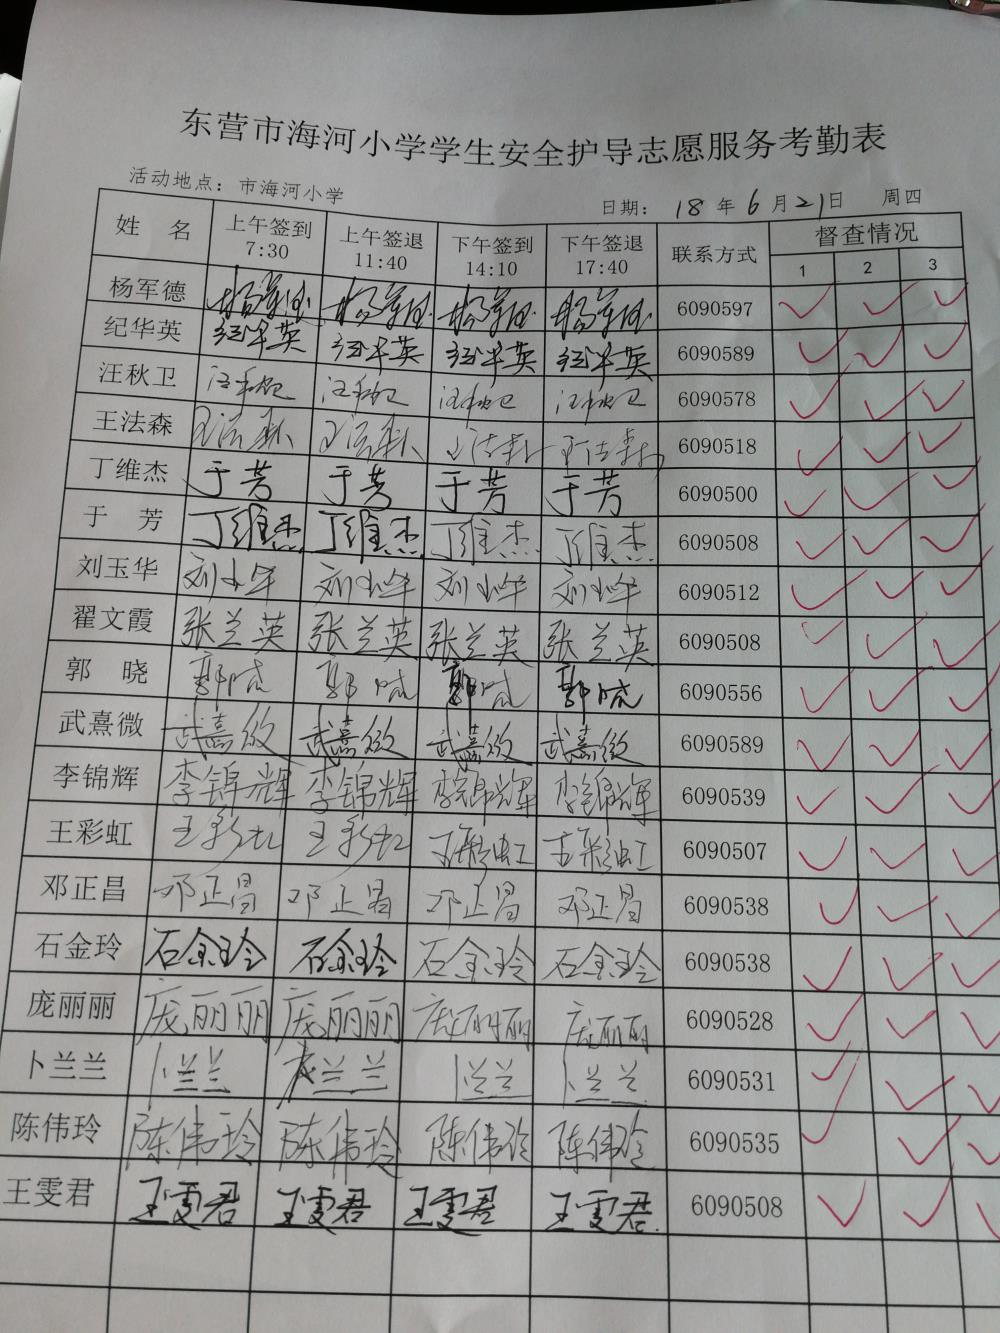 东营市海河小学学生安全护导志愿服务考勤表
活动地点：市海河小学 日期： 18 年 6 月 21 日 周四
姓 名 上午签到 7:30 上午签退 11:40 下午签到 14:10 下午签退 17:40 联系方式 督查情况
1 2 3
杨军德 杨军德 杨军德 杨军德 杨军德 6090597 ✓ ✓ ✓
纪华英 纪华英 纪华英 纪华英 纪华英 6090589 ✓ ✓ ✓
汪秋卫 汪秋卫 汪秋卫 汪秋卫 汪秋卫 6090578 ✓ ✓ ✓
王法森 王法森 王法森 王法森 王法森 6090518 ✓ ✓ ✓
丁维杰 于芳 于芳 于芳 于芳 6090500 ✓ ✓ ✓
于 芳 丁维杰 丁维杰 丁维杰 丁维杰 6090508 ✓ ✓ ✓
刘玉华 刘玉华 刘玉华 刘玉华 刘玉华 6090512 ✓ ✓ ✓
翟文霞 张兰英 张兰英 张兰英 张兰英 6090508 ✓ ✓ ✓
郭 晓 郭晓 郭晓 郭晓 郭晓 6090556 ✓ ✓ ✓
武熹微 武熹微 武熹微 武熹微 武熹微 6090589 ✓ ✓ ✓
李锦辉 李锦辉 李锦辉 李锦辉 李锦辉 6090539 ✓ ✓ ✓
王彩虹 王彩虹 王彩虹 王彩虹 王彩虹 6090507 ✓ ✓ ✓
邓正昌 邓正昌 邓正昌 邓正昌 邓正昌 6090538 ✓ ✓ ✓
石金玲 石金玲 石金玲 石金玲 石金玲 6090538 ✓ ✓ ✓
庞丽丽 庞丽丽 庞丽丽 庞丽丽 庞丽丽 6090528 ✓ ✓ ✓
卜兰兰 卜兰兰 兰兰 卜兰兰 卜兰兰 6090531 ✓ ✓ ✓
陈伟玲 陈伟玲 陈伟玲 陈伟玲 陈伟玲 6090535 ✓ ✓ ✓
王雯君 王雯君 王雯君 王雯君 王雯君 6090508 ✓ ✓ ✓